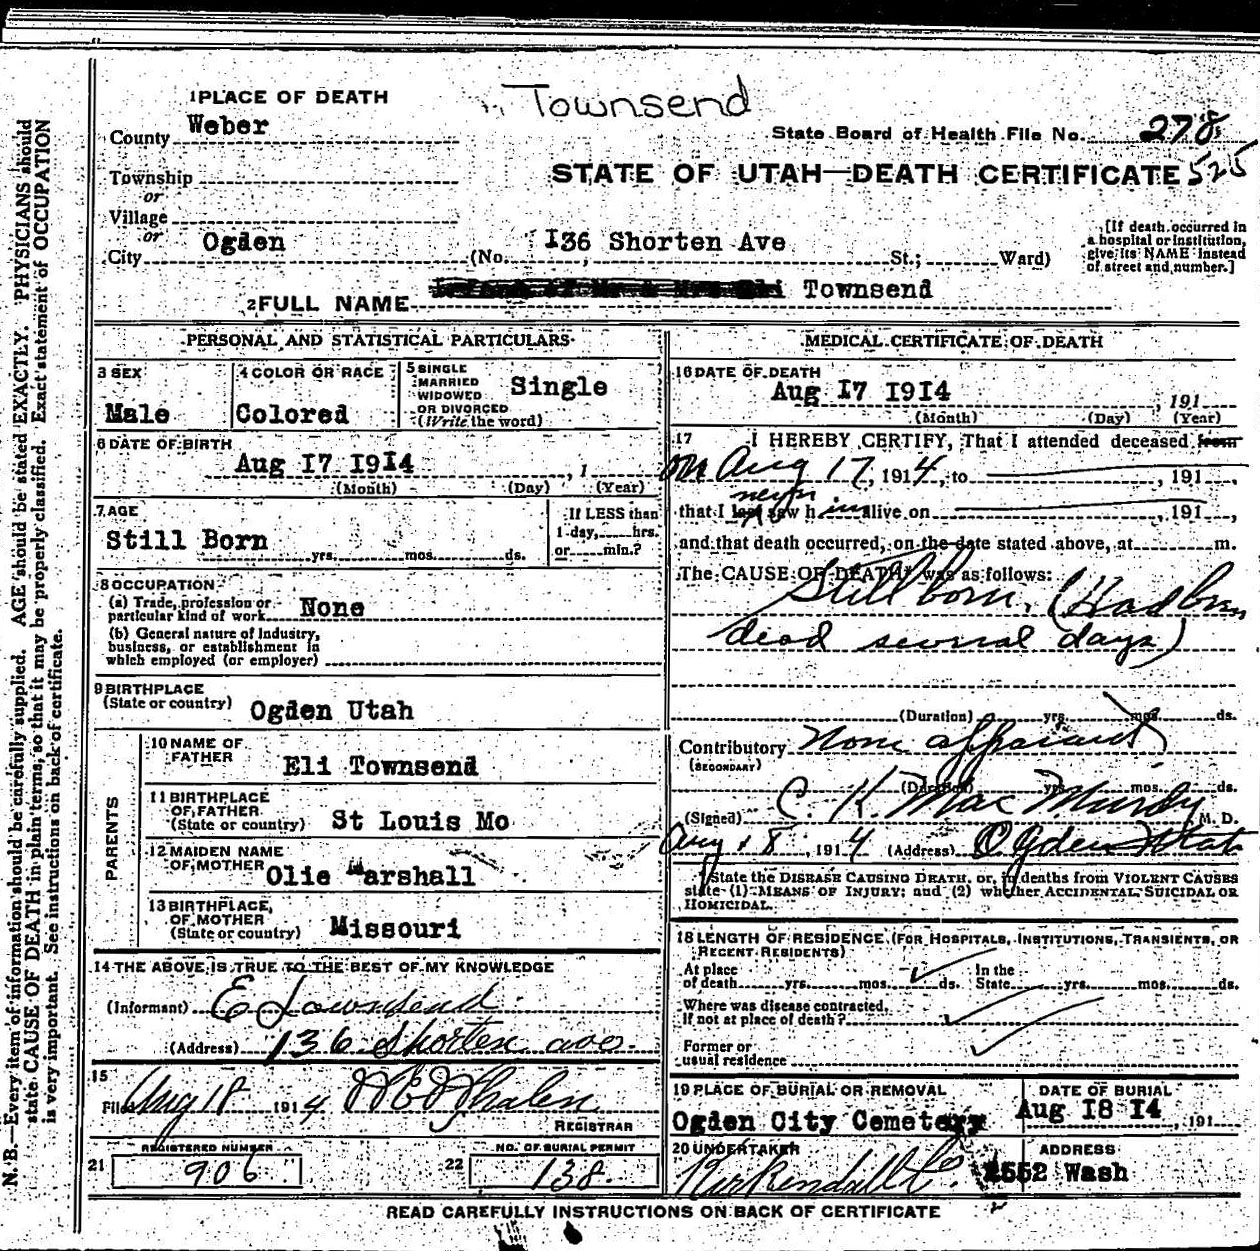 Townsend
1 PLACE OF DEATH
County Weber
State Board of Health File No. 278
Township
STATE OF UTAH—DEATH CERTIFICATE 525
or
Village
or
City Ogden (No. 136 Shorten Ave St.; Ward)
[If death occurred in
a hospital or institution,
give its NAME instead
of street and number.]
2 FULL NAME Townsend
PERSONAL AND STATISTICAL PARTICULARS
3 SEX
Male
4 COLOR OR RACE
Colored
5 SINGLE
MARRIED
WIDOWED
OR DIVORCED
(Write the word)
Single
6 DATE OF BIRTH
Aug 17 1914 , 1
(Month) (Day) (Year)
7 AGE
Still Born
yrs. mos. ds.
If LESS than
1 day, hrs.
or min.?
8 OCCUPATION
(a) Trade, profession or
particular kind of work None
(b) General nature of Industry,
business, or establishment in
which employed (or employer)
9 BIRTHPLACE
(State or country) Ogden Utah
PARENTS
10 NAME OF
FATHER Eli Townsend
11 BIRTHPLACE
OF FATHER
(State or country) St Louis Mo
12 MAIDEN NAME
OF MOTHER Olie Marshall
13 BIRTHPLACE,
OF MOTHER
(State or country) Missouri
14 THE ABOVE IS TRUE TO THE BEST OF MY KNOWLEDGE
(Informant) E Townsend
(Address) 136 Shorten ave.
15
Filed Aug 18 1914
REGISTRAR
21 REGISTERED NUMBER
906
22 NO. OF BURIAL PERMIT
138.
MEDICAL CERTIFICATE OF DEATH
16 DATE OF DEATH
Aug 17 1914 , 191
(Month) (Day) (Year)
17 I HEREBY CERTIFY, That I attended deceased from
on Aug 17, 1914, to , 191 ,
never
that I last saw h im alive on , 191 ,
and that death occurred, on the date stated above, at m.
The CAUSE OF DEATH* was as follows:
Still born. (Had been
dead several days)
(Duration) yrs. mos. ds.
Contributory None apparent
(SECONDARY)
(Duration) yrs. mos. ds.
(Signed) C. K. MacMurdy M. D.
Aug 18, 1914 (Address) Ogden Utah
*State the DISEASE CAUSING DEATH, or, in deaths from VIOLENT CAUSES
state (1) MEANS OF INJURY; and (2) whether ACCIDENTAL, SUICIDAL OR
HOMICIDAL.
18 LENGTH OF RESIDENCE (FOR HOSPITALS, INSTITUTIONS, TRANSIENTS, OR
RECENT RESIDENTS)
At place
of death yrs. mos. ds.
In the
State yrs. mos. ds.
Where was disease contracted,
If not at place of death?
Former or
usual residence
19 PLACE OF BURIAL OR REMOVAL
Ogden City Cemetery
DATE OF BURIAL
Aug 18 14 , 191
20 UNDERTAKER
Kirkendall Co.
ADDRESS
2552 Wash
READ CAREFULLY INSTRUCTIONS ON BACK OF CERTIFICATE
N. B.—Every item of information should be carefully supplied. AGE should be stated EXACTLY. PHYSICIANS should
state CAUSE OF DEATH in plain terms, so that it may be properly classified. Exact statement of OCCUPATION
is very important. See instructions on back of certificate.